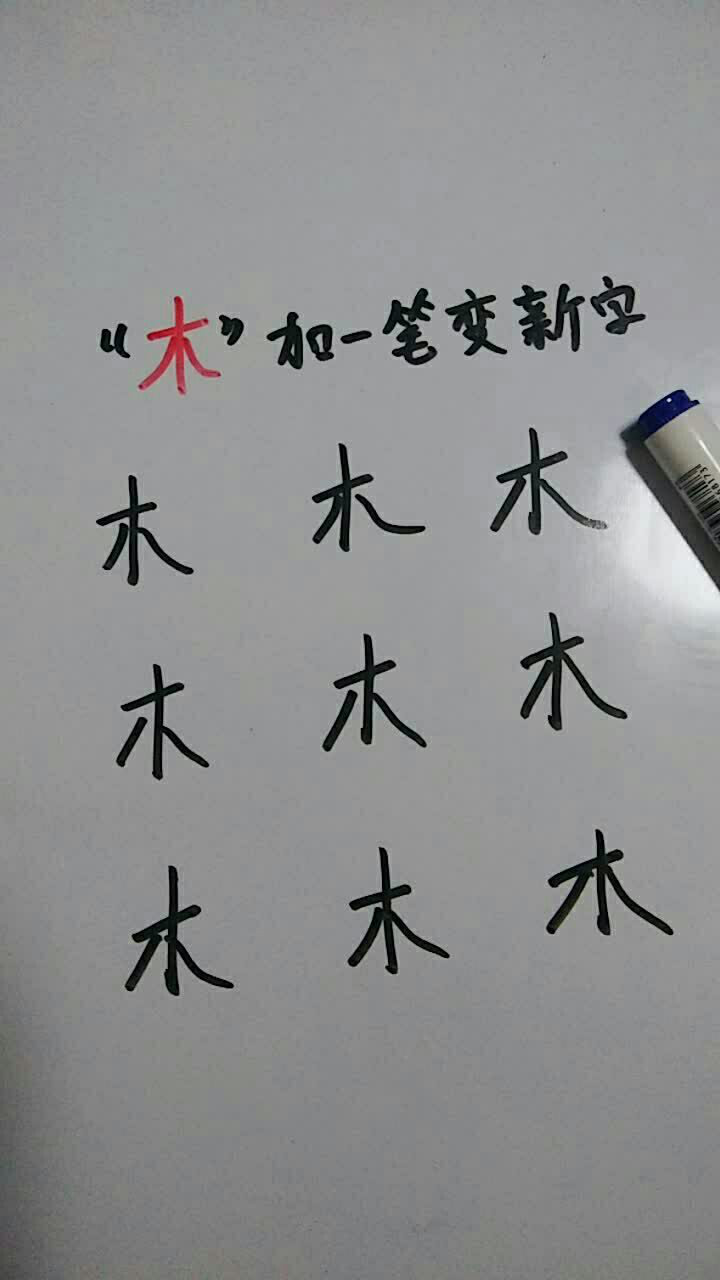 “木”加一笔变新字
木 木 木
木 木 木
木 木 木
8173